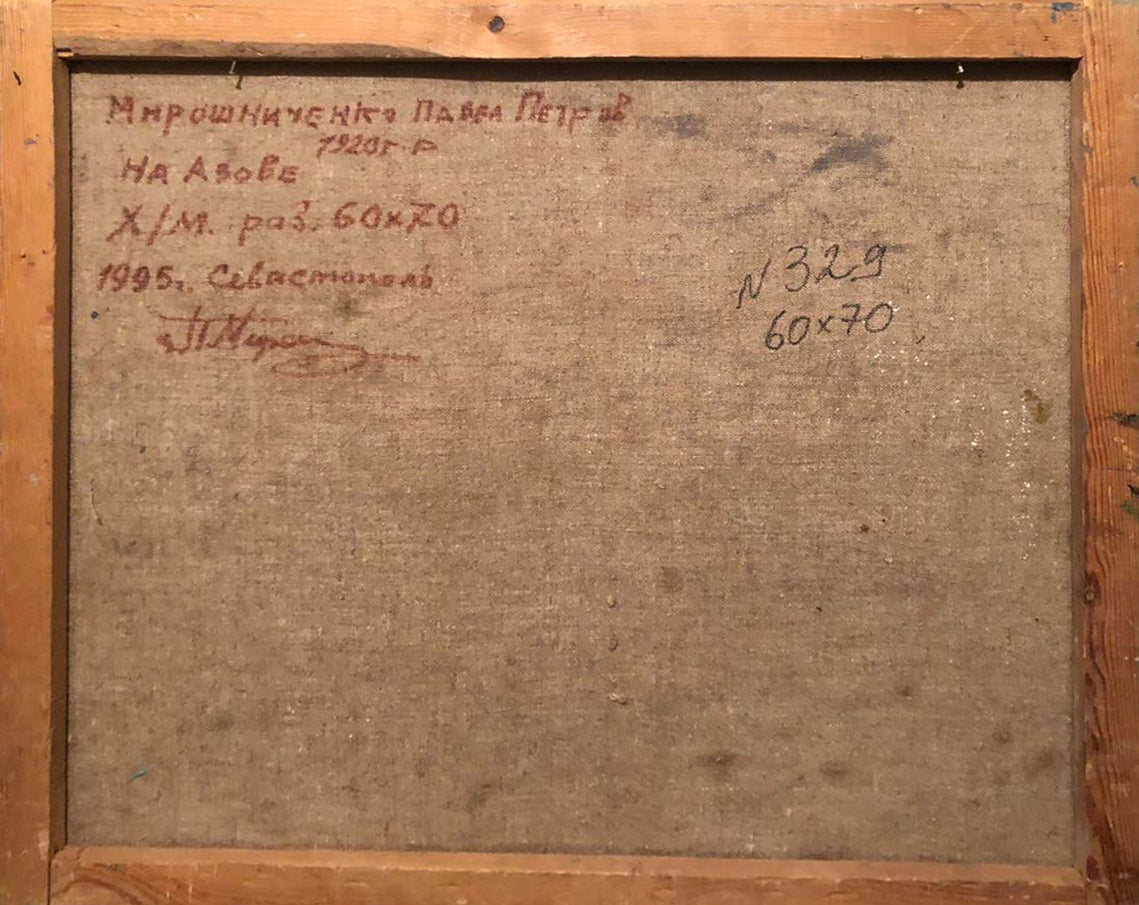 Мирошниченко Павел Петров
1920г. р
На Азове
Х/М. раз. 60х70
1995г. Севастополь
П Миро
N 329
60х70